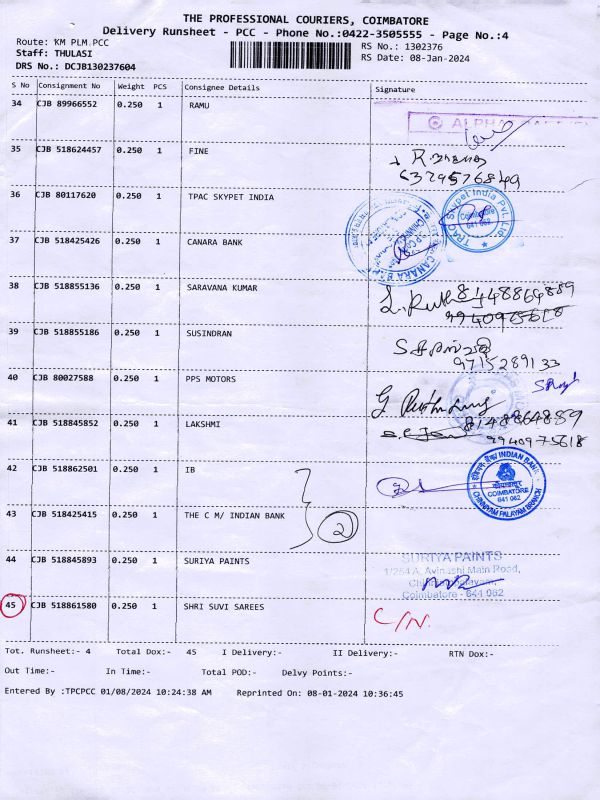 THE PROFESSIONAL COURIERS, COIMBATORE
Delivery Runsheet - PCC - Phone No.:0422-3505555 - Page No.:4
Route: KM PLM PCC RS No.: 1302376
Staff: THULASI RS Date: 08-Jan-2024
DRS No.: DCJB130237604
S No Consignment No Weight PCS Consignee Details Signature
34 CJB 89966552 0.250 1 RAMU
ALPHA
35 CJB 518624457 0.250 1 FINE
6379576849
36 CJB 80117620 0.250 1 TPAC SKYPET INDIA
TPAC Skypet India Pvt. Ltd. Coimbatore 641 062
37 CJB 518425426 0.250 1 CANARA BANK
CANARA BANK
38 CJB 518855136 0.250 1 SARAVANA KUMAR 8148864889
9940975618
39 CJB 518855186 0.250 1 SUSINDRAN
9715289133
40 CJB 80027588 0.250 1 PPS MOTORS
41 CJB 518845852 0.250 1 LAKSHMI 8148864889
9940975618
42 CJB 518862501 0.250 1 IB
INDIAN BANK COIMBATORE 641 062 CHINNIYAM PALAYAM BRANCH
43 CJB 518425415 0.250 1 THE C M/ INDIAN BANK 2
44 CJB 518845893 0.250 1 SURIYA PAINTS SURIYA PAINTS
1/254 A, Avinashi Main Road,
Coimbatore - 641 062
45 CJB 518861580 0.250 1 SHRI SUVI SAREES C/N.
Tot. Runsheet:- 4 Total Dox:- 45 I Delivery:- II Delivery:- RTN Dox:-
Out Time:- In Time:- Total POD:- Delvy Points:-
Entered By :TPCPCC 01/08/2024 10:24:38 AM Reprinted On: 08-01-2024 10:36:45